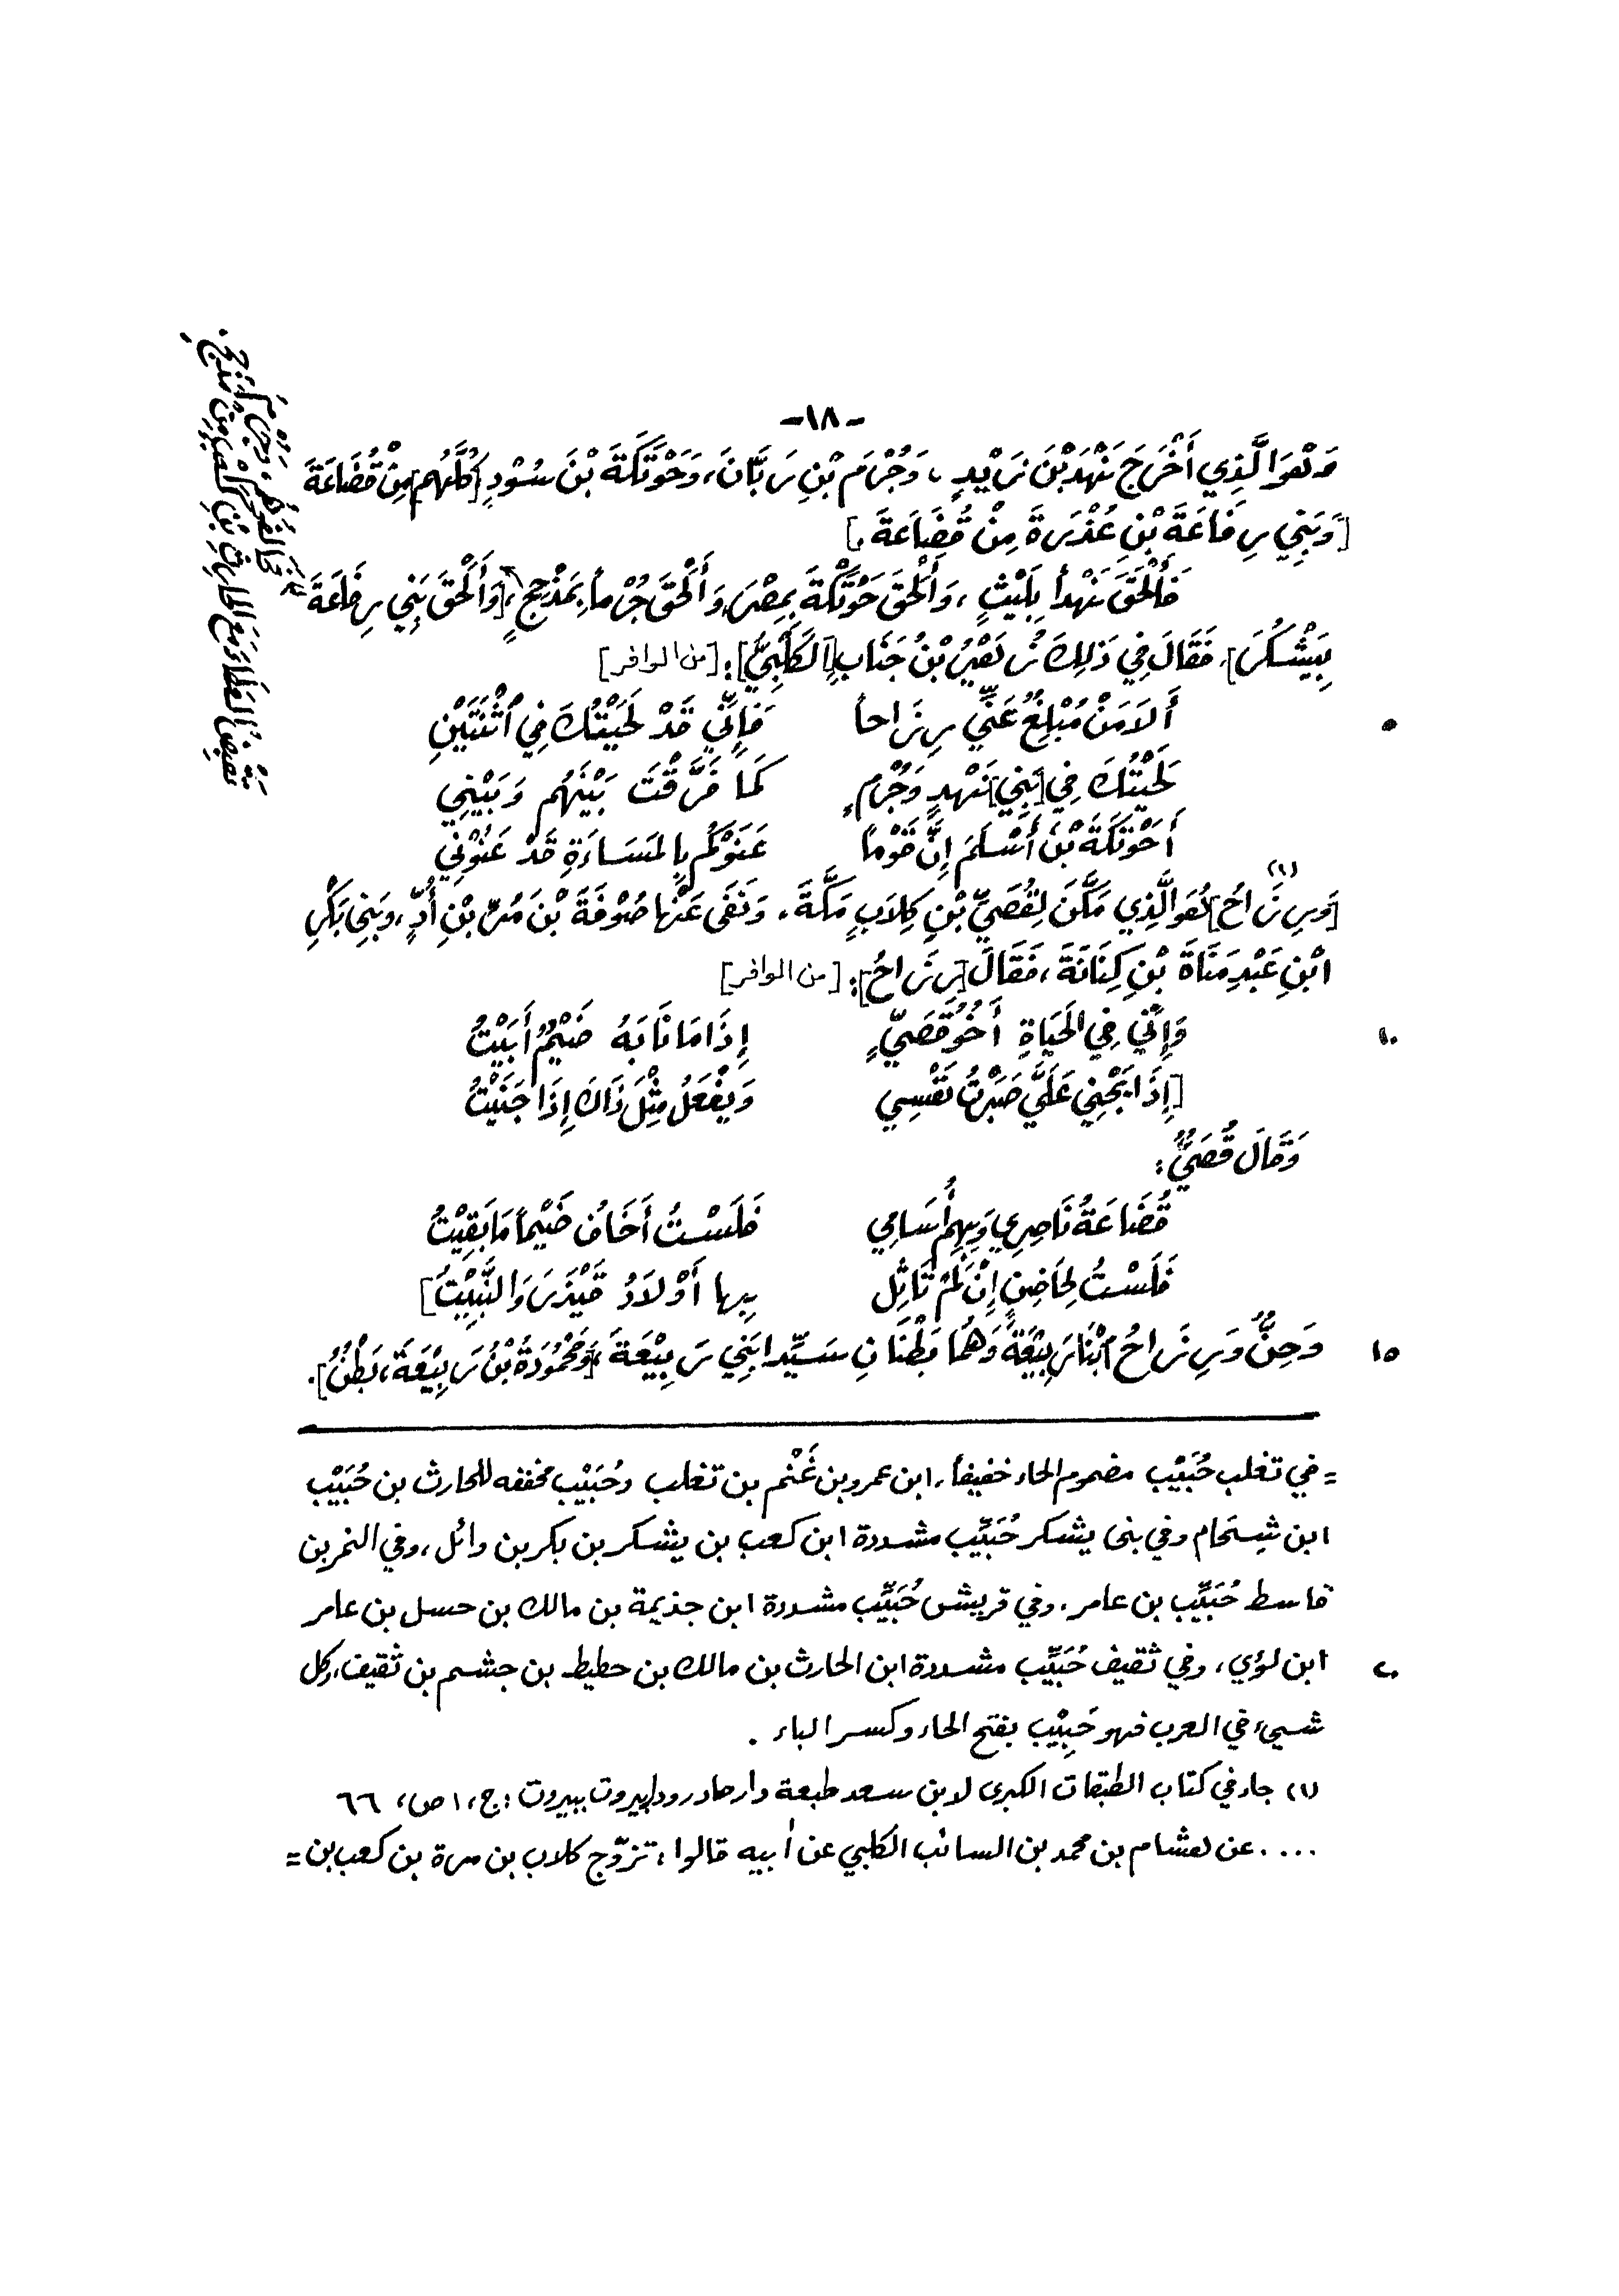 -١٨-
وَهُوَ الَّذِي أَخْرَجَ نَهْدَ بْنَ زَيْدٍ ، وَجُرْمَ بْنِ رَبَّانَ، وَحَوْتَكَةَ بْنَ سُوْدٍ [كُلَّهُم] مِنْ قُضَاعَةَ
[وَبَنِي رِفَاعَةَ بْنِ عُذْرَةَ مِنْ قُضَاعَةَ.]
فَأَلْحَقَ نَهْداً بِلَيْثٍ ، وَأَلْحَقَ حَوْتَكَةَ بِمِصْرَ، وَأَلْحَقَ جُرْماً بِمَذْحِجٍ، [وَأَلْحَقَ بَنِي رِفَاعَةَ
بِيَشْكُرَ]، فَقَالَ فِي ذَلِكَ زُهَيْرُ بْنُ جَنَابٍ [الكَلْبِيُّ]: [من الوافر]
أَلاَ مَنْ مُبْلِغٌ عَنِّي رِزَاحاً فَإِنِّي قَدْ لَحَيْتُكَ فِي اثْنَتَيْنِ
٥
لَحَيْتُكَ فِي [بَنِي] نَهْدٍ وَجُرْمٍ كَمَا فَرَّقْتَ بَيْنَهُم وَبَيْنِي
أَحَوْتَكَةَ بْنَ أَسْلَمَ إِنَّ قَوْماً عَنَوْكُم بِالمَسَاءَةِ قَدْ عَنَوْنِي
[وَرِزَاحُ] هُوَ الَّذِي مَكَّنَ لِقُصَيِّ بْنِ كِلاَبٍ مَكَّةَ، وَنَفَى عَنْهَا صُوْفَةَ بْنَ مُرِّ بْنِ أُدٍّ، وَبَنِي بَكْرِ (١)
ابْنِ عَبْدِ مَنَاةَ بْنِ كِنَانَةَ، فَقَالَ [رِزَاحُ]: [من الوافر]
وَإِنِّي فِي الحَيَاةِ أَخُو قُصَيٍّ إِذَا مَا نَابَهُ ضَيْمٌ أَبَيْتُ
١٠
[إِذَا يَجْنِي عَلَيَّ صَبَرْتُ نَفْسِي وَيَفْعَلُ مِثْلَ ذَاكَ إِذَا جَنَيْتُ
وَقَالَ قُصَيٌّ:
قُضَاعَةُ نَاصِرِي وَبِهِم أُسَامِي فَلَسْتُ أَخَافُ ضَيْماً مَا بَقِيْتُ
فَلَسْتُ لِحَاضِنٍ إِنْ لَمْ تَأَثَّل بِهَا أَوْلاَدُ قَيْذَرَ وَالنَّبِيْتُ]
وَحِنٌّ وَرِزَاحُ ابْنَا رَبِيْعَةَ وَهُمَا بَطْنَانِ سَيِّدا بَنِي رَبِيْعَةَ، [وَمَحْمُودَةُ بْنُ رَبِيْعَةَ، بَطْنٌ].
١٥
= في تغلب حُبَيْب مضموم الحاء خفيفاً، ابن عمرو بن غَنْم بن تغلب وحُبَيْب مخففه للحارث بن حُبَيْب
ابن شِحَام وفي بني يشكر حُبَيِّب مشددة ابن كعب بن يشكر بن بكر بن وائل، وفي النمر بن
قاسط حُبَيِّب بن عامر، وفي قريش حُبَيِّب مشددة ابن جذيمة بن مالك بن حسل بن عامر
ابن لؤي، وفي ثقيف حُبَيِّب مشددة ابن الحارث بن مالك بن حطيط بن جشم بن ثقيف، وكل
٢٠
شيء في العرب فهو حَبِيْب بفتح الحاء وكسر الباء .
(١) جاء في كتاب الطبقات الكبرى لابن سعد طبعة دار صادر ودار بيروت ببيروت : ج، ١ ص، ٦٦
.... عن هشام بن محمد بن السائب الكلبي عن أبيه قالوا، تزوّج كلاب بن مرة بن كعب بن =